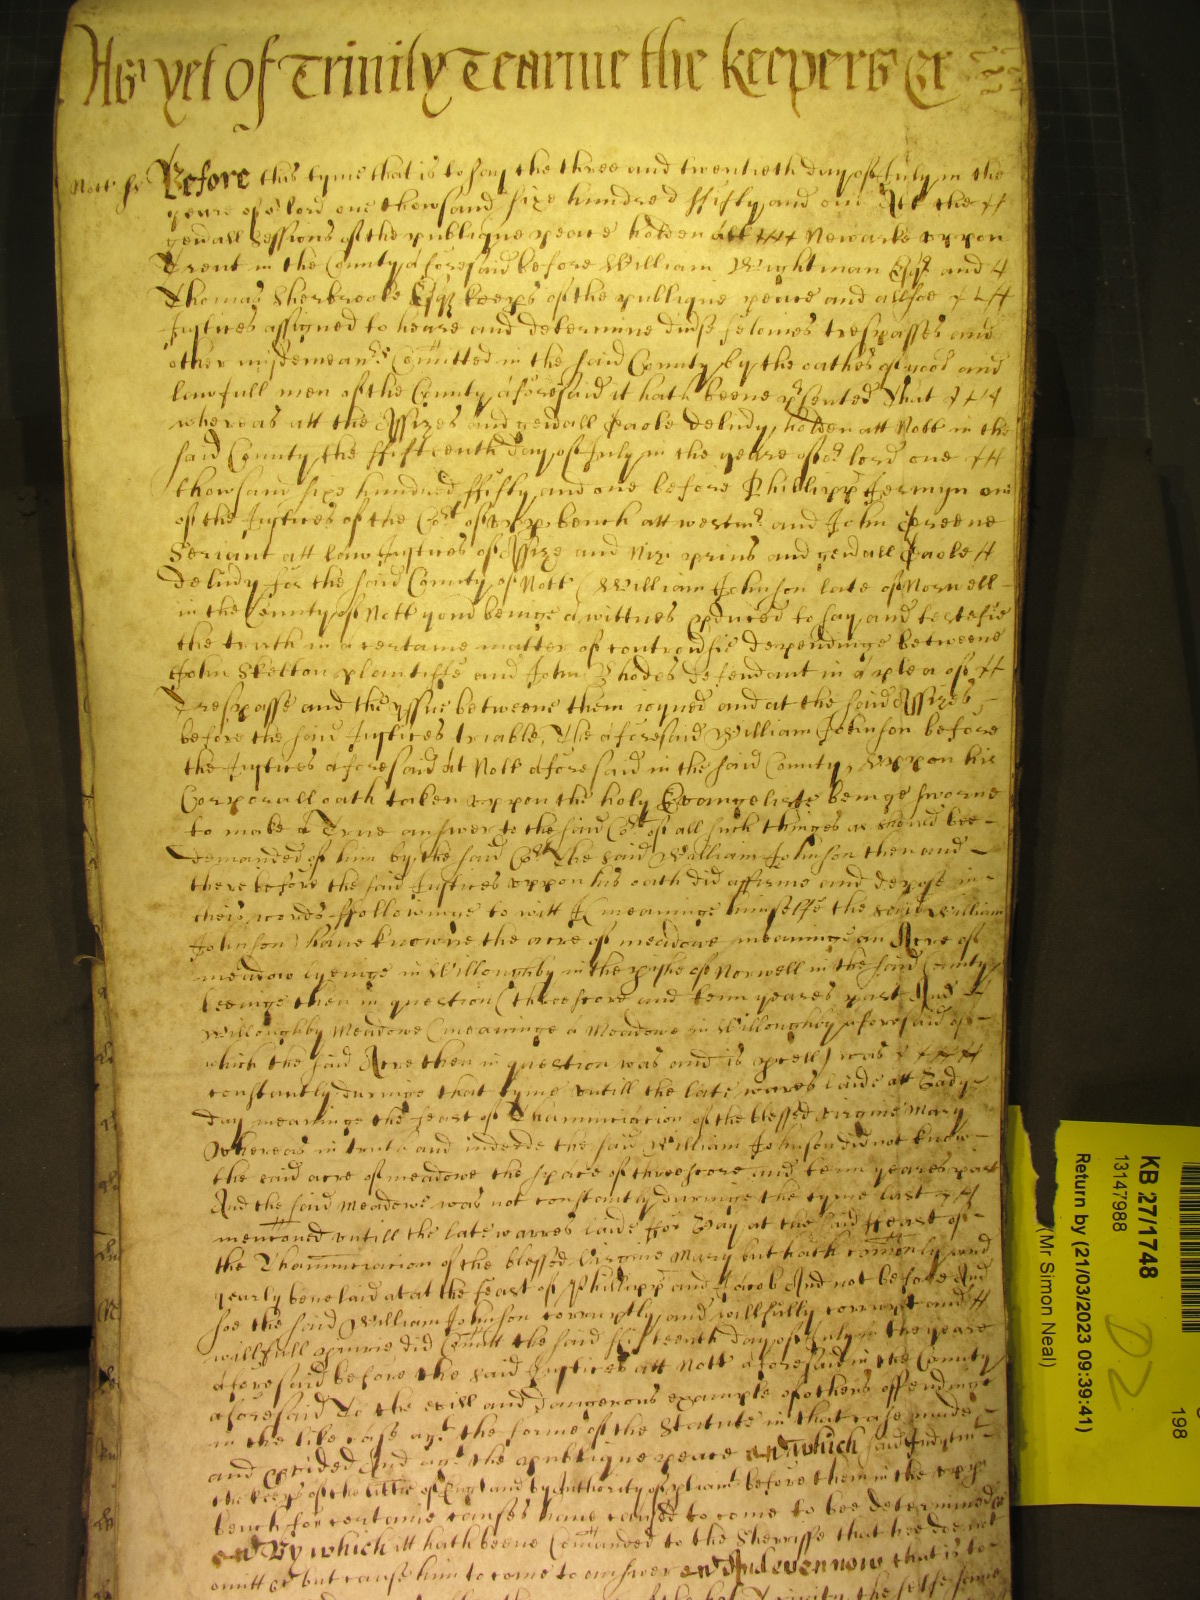 As yet of Trinity Tearme the keepers &c
Nott ss Before this tyme that is to say the three and twentieth day of July in the
yeare of or lord one thowsand sixe hundred ffifty and one Att the
genall sessions of the publique peace holden att Newarke uppon
Trent in the County aforesaid before William Wightman Esqr and
Thomas Sherbrooke Esqr keeps of the publique peace and allsoe
Justices assigned to heare and determine divse felonies trespasses and
other misdemeanrs Comitted in the said County by the oathes of good and
lawfull men of the County aforesaid it hath beene psented That
whereas att the Assizes and genall Gaole delivy holden att Nott in the
said County the ffifteenth day of July in the yeare of or lord one
thowsand sixe hundred ffifty and one before Phillipp Jermyn one
of the Justices of the Cort of upp bench att westmr and John Greene
Seriant att law Justices of Assize and Nizi prius and genall Gaole
delivy for the said County of Nott William Johnson late of Norwell
in the County of Nott yom beinge a wittnes pduced to say and testefie
the truth in a certaine matter of controvsie dependinge betweene
John Skelton plaintiffe and John Rhodes defendant in a plea of
Trespasse and the yssue betweene them ioyned and at the said Assizes
before the said Justices triable, The aforesaid William Johnson before
the Justices aforesaid at Nott aforesaid in the said County, uppon his
Corporall oath taken uppon the holy Evangeliste beinge sworne
to make a True answer to the said Cort of all such thinges as should bee
demanded of him by the said Cort The said William Johnson then and
there before the said Justices uppon his oath did affirme and depose in
theis words ffollowinge to witt I (meaninge himselfe the said William
Johnson) have knowne the acre of meadowe meaninge an Acre of
meadow lyeinge in Willoughby in the pishe of Norwell in the said County
beeinge then in question (threescore and tenn yeares past And
Willoughby Meadowe (meaninge a Meadowe in Willoughby aforesaid of
which the said Acre then in question was and is pcell) was
constantly duringe that tyme untill the late warres laide att Lady
day meaninge the feast of Thannunciation of the blessed virgine Mary
Whereas in truth and indeede the said William Johnson did not know
the said acre of meadowe the space of threescore and tenn yeares past
And the said Meadowe was not constantly duringe the tyme last
mentioned untill the late warres laide for Hay at the said ffeast of
the Thannunciation of the blessed Virgine Mary but hath comonly and
yearly bene laid at at the feast of Phillipp and Jacob And not before And
soe the said William Johnson corruptly and willfully corrupt and
willfull piurie did Comitt the said ffifteenth day of July in the yeare
aforesaid before the said Justices att Nott aforesaid in the County
aforesaid To the evill and dangerous example of others offendinge
in the like case agt the forme of the Statute in that case made
and pvided And agt the publique peace and which said Indytmt
the keeps of the libtie of England by Authority of pliamt before them in the upp
bench for certaine causes have caused to come to bee determined
and By which itt hath beene Comanded to the Sherriffe that hee doe not
omitt &c but cause him to come to answer and And even now that is to
of the holy Trinity the selfe same
KB 27/1748
13147988
Return by (21/03/2023 09:39:41)
(Mr Simon Neal)
D2
198